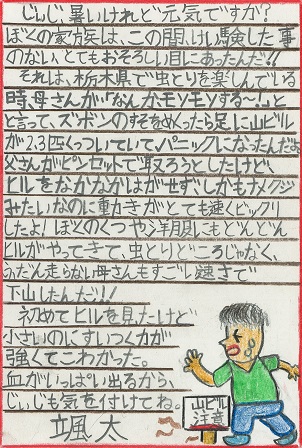 じぃじ暑いけれど元気ですか?
ぼくの家族は、この間、けい験した事
のない、とてもおそろしい目にあったんだ!!
それは、栃木県で虫とりを楽しんでいる
時、母さんが「なんかモソモソする〜。」と
言って、ズボンのすそをめくったら足に山ビル
が2,3匹くっついていて、パニックになったんだよ
父さんがピンセットで取ろうとしたけど、
ヒルをなかなかはがせずしかもナメクジ
みたいなのに重かきがとても速くビックリ
したよ!ぼくのくつや洋服にもどんどん
ヒルがやってきて、虫とりどころじゃなく、
ふだん走らない母さんもすごい速さで
下山したんだ!!!
初めてヒルを見たけど
小さいのにすいつく力が
強くてこわかった。
血がいっぱい出るから、
じぃじも気を付けてね。
颯大
山ビル
注意